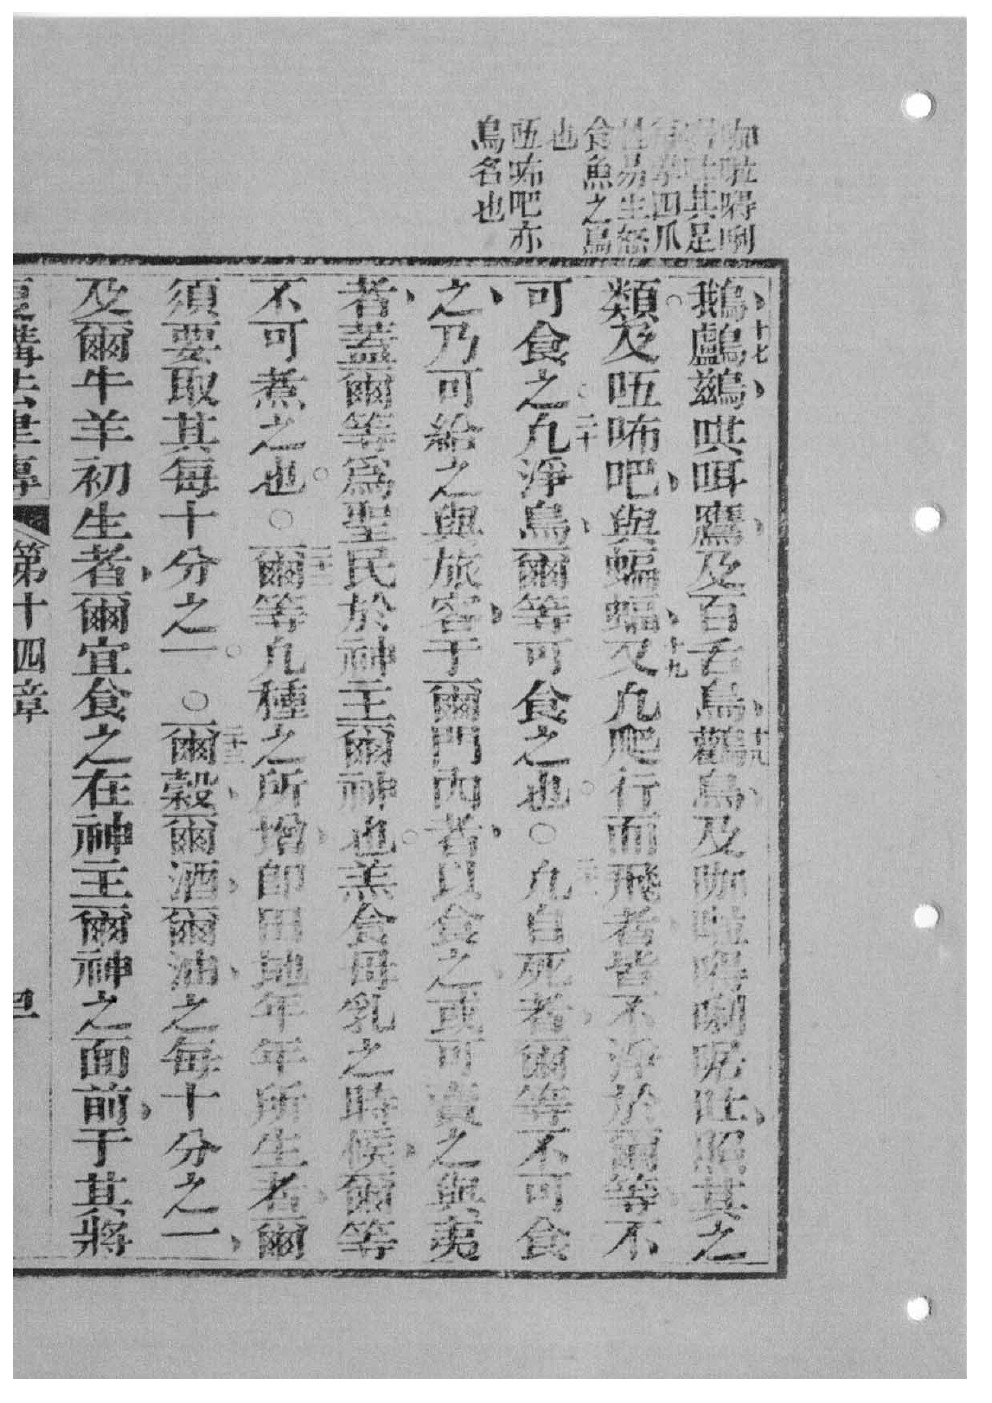 咖啦嘚唎
吐其足
四爪
易生怒
食魚之鳥
也
咓咘吧亦
鳥名也
鵝鸕鶿哄咡鷹及百舌鳥鸛鳥及咖啦嘚唎呢吐照其之
類及咓咘吧與蝙蝠又凡爬行而飛者皆不淨於爾等不
可食之凡淨鳥爾等可食之也○凡自死者爾等不可食
之乃可給之與旅客于爾門內者以食之或可賣之與夷
者蓋爾等爲聖民於神主爾神也羔食母乳之時候爾等
不可煮之也○爾等凡種之所增卽田地年年所生者爾
須要取其每十分之一○爾穀爾酒爾油之每十分之一
及爾牛羊初生者爾宜食之在神主爾神之面前于其將
復講法律傳 第十四章